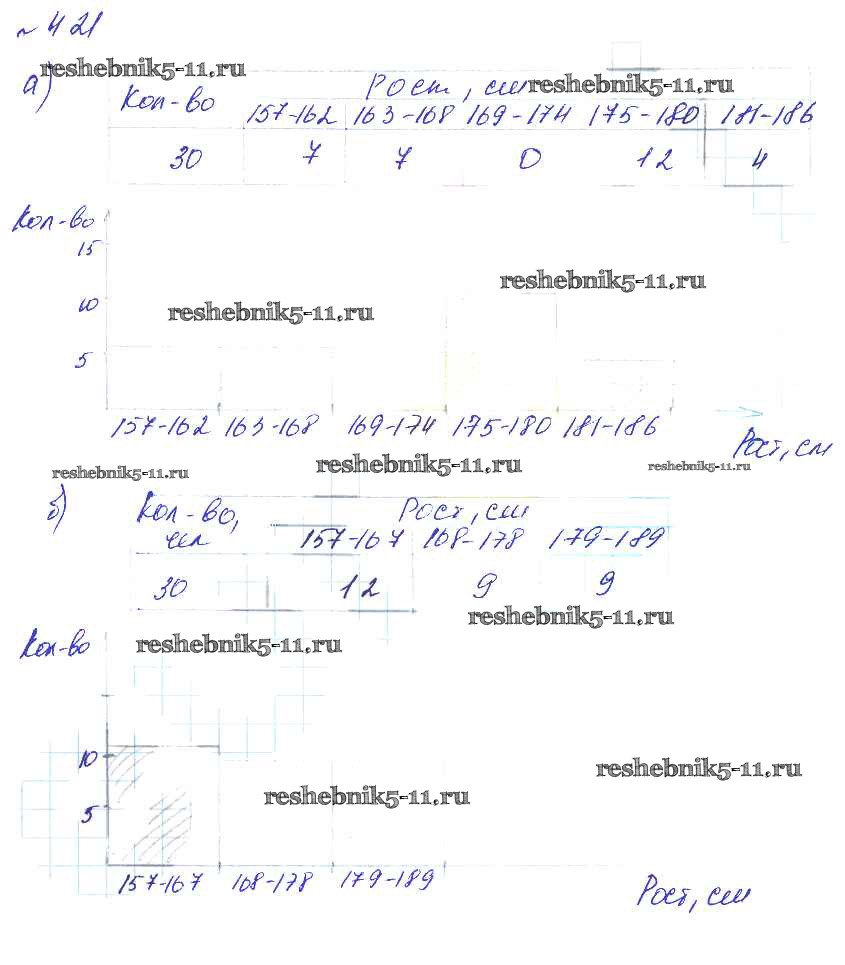 № 421
reshebnik5-11.ru
а) Кол-во Рост, см reshebnik5-11.ru
157-162 163-168 169-174 175-180 181-186
30 7 7 0 12 4
Кол-во
15
reshebnik5-11.ru
10
reshebnik5-11.ru
5
157-162 163-168 169-174 175-180 181-186
Рост, см
reshebnik5-11.ru reshebnik5-11.ru reshebnik5-11.ru
б) Кол-во, Рост, см
чел 157-167 168-178 179-189
30 12 9 9
reshebnik5-11.ru
Кол-во reshebnik5-11.ru
10
reshebnik5-11.ru
reshebnik5-11.ru
5
157-167 168-178 179-189
Рост, см